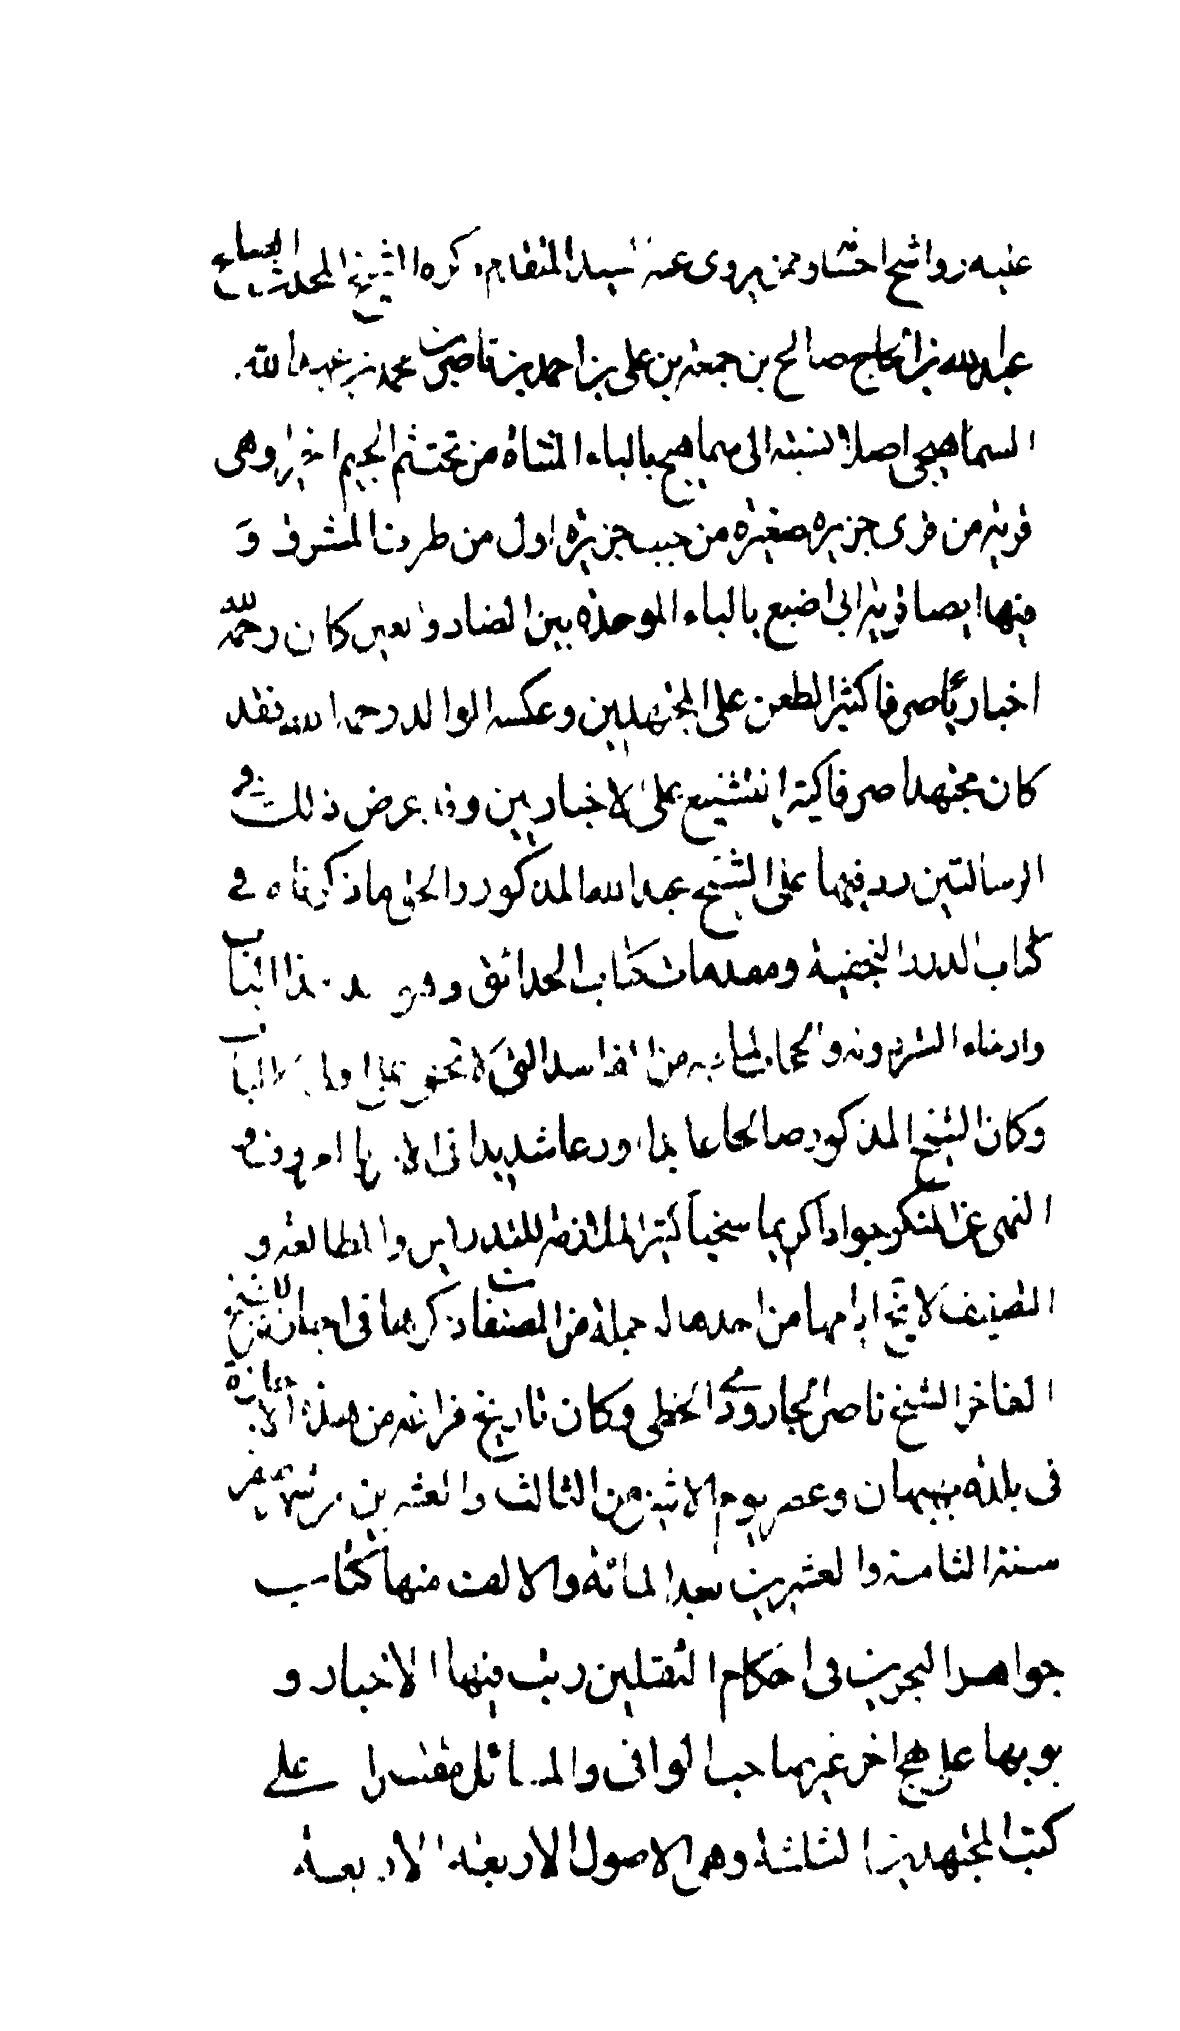 عنبه زواشخ احتشا وممن يروى عنه السيد المتقدم ذكره الشيخ المحدث الصالح
عبد الله بن الحاج صالح بن جمعه بن على بن احمد بن ناصر بن محمد بن عبد الله
السماهيجى اصلا نسبته الى سماهيج بالياء المثناة من تحت ثم الجيم اخيرا وهى
قرية من قرى جزيرة صغيرة من جنب جزيرة اوال من طرفنا المشرق و
فيها ايضا قرية ابى اضبع بالباء الموحدة بين الضاد والعين كان رحمه الله
اخباريا صرفا كثير الطعن على المجتهدين وعكسه الوالد رحمه الله فقد
كان مجتهدا صرفا كثير التشنيع على الاخباريين وقد عرض ذلك فى
الرسالتين رد فيهما على الشيخ عبد الله المذكور والحق ما ذكرناه فى
كتاب الدرر النجفية ومقدمات كتاب الحدائق وهو سد هذا الباب
وارخاء الستر دونه والحجاب لما فيه من المفاسد التى لا تخفى على اولى الالباب
وكان الشيخ المذكور صالحا عابدا ورعا شديدا فى الامر بالمعروف و
النهى عن المنكر جوادا كريما سخيا كثير الملازمة للتدريس والمطالعة و
التصنيف لا تخ ايامها من احدها له جملة من المصنفات ذكرها فى اجازته للشيخ
الفاخر الشيخ ناصر الجارودى الخطى وكان تاريخ فراغه من هذه الاجازة
فى بلدة بهبهان وعصر يوم الاثنين الثالث والعشرين من شهر صفر
سنة الثامنة والعشرين بعد المائة والالف منها كتاب
جواهر البحرين فى احكام الثقلين رتب فيها الاخبار و
بوبها على نهج اخر غير صاحب الوافى والوسائل مقتصرا على
كتب المجتهدين الثلثة وهى الاصول الاربعة الاربعة